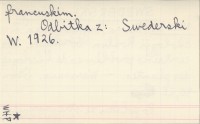 francuskim.
Odbitka z: Swederski
W. 1926.